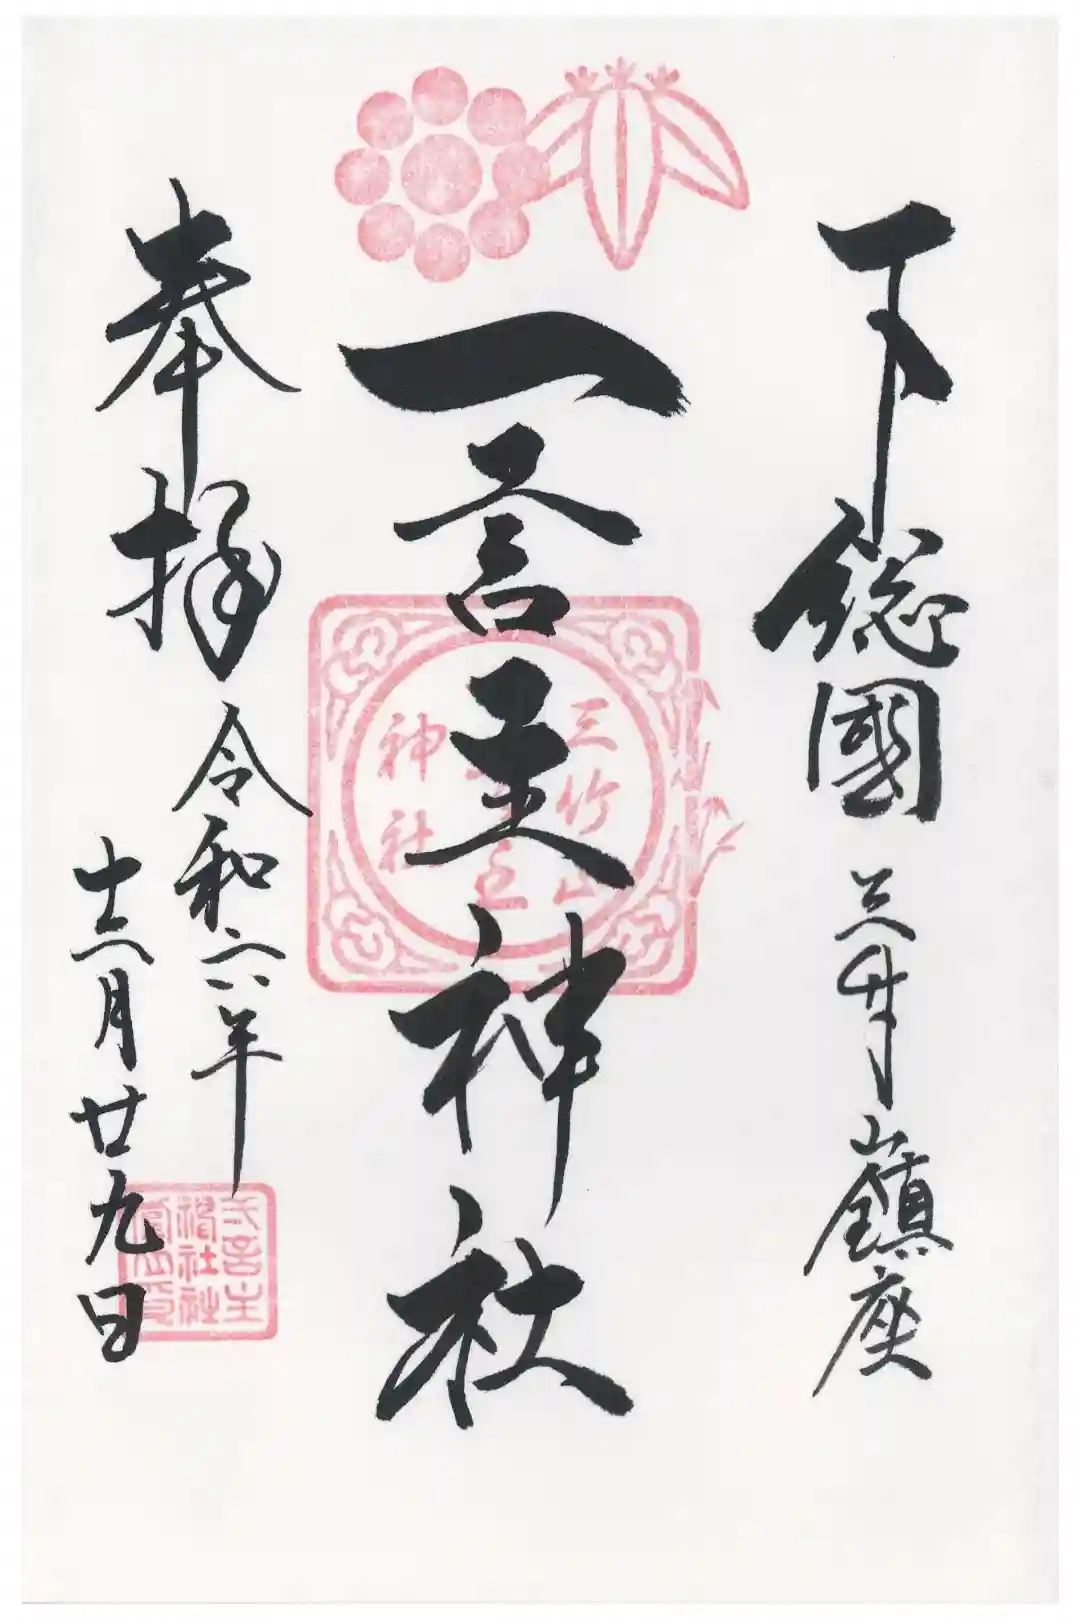 下総國 三竹山鎮座
一言主神社
三竹山
一言主
神社
奉拝 令和六年
十二月廿九日
一言主
神社社